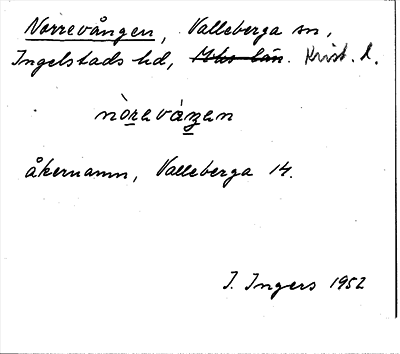 Norrevången, Valleberga sn,
Ingelstads hd, Mhs län. Krist. l.
nòravåŋan
åkernamn, Valleberga 14.
I. Ingers 1952